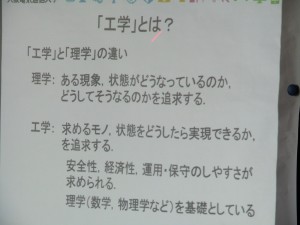 「工学」とは?
「工学」と「理学」の違い
理学: ある現象, 状態がどうなっているのか,
どうしてそうなるのかを追求する.
工学: 求めるモノ, 状態をどうしたら実現できるか,
を追求する.
安全性, 経済性, 運用・保守のしやすさが
求められる.
理学(数学, 物理学など)を基礎としている